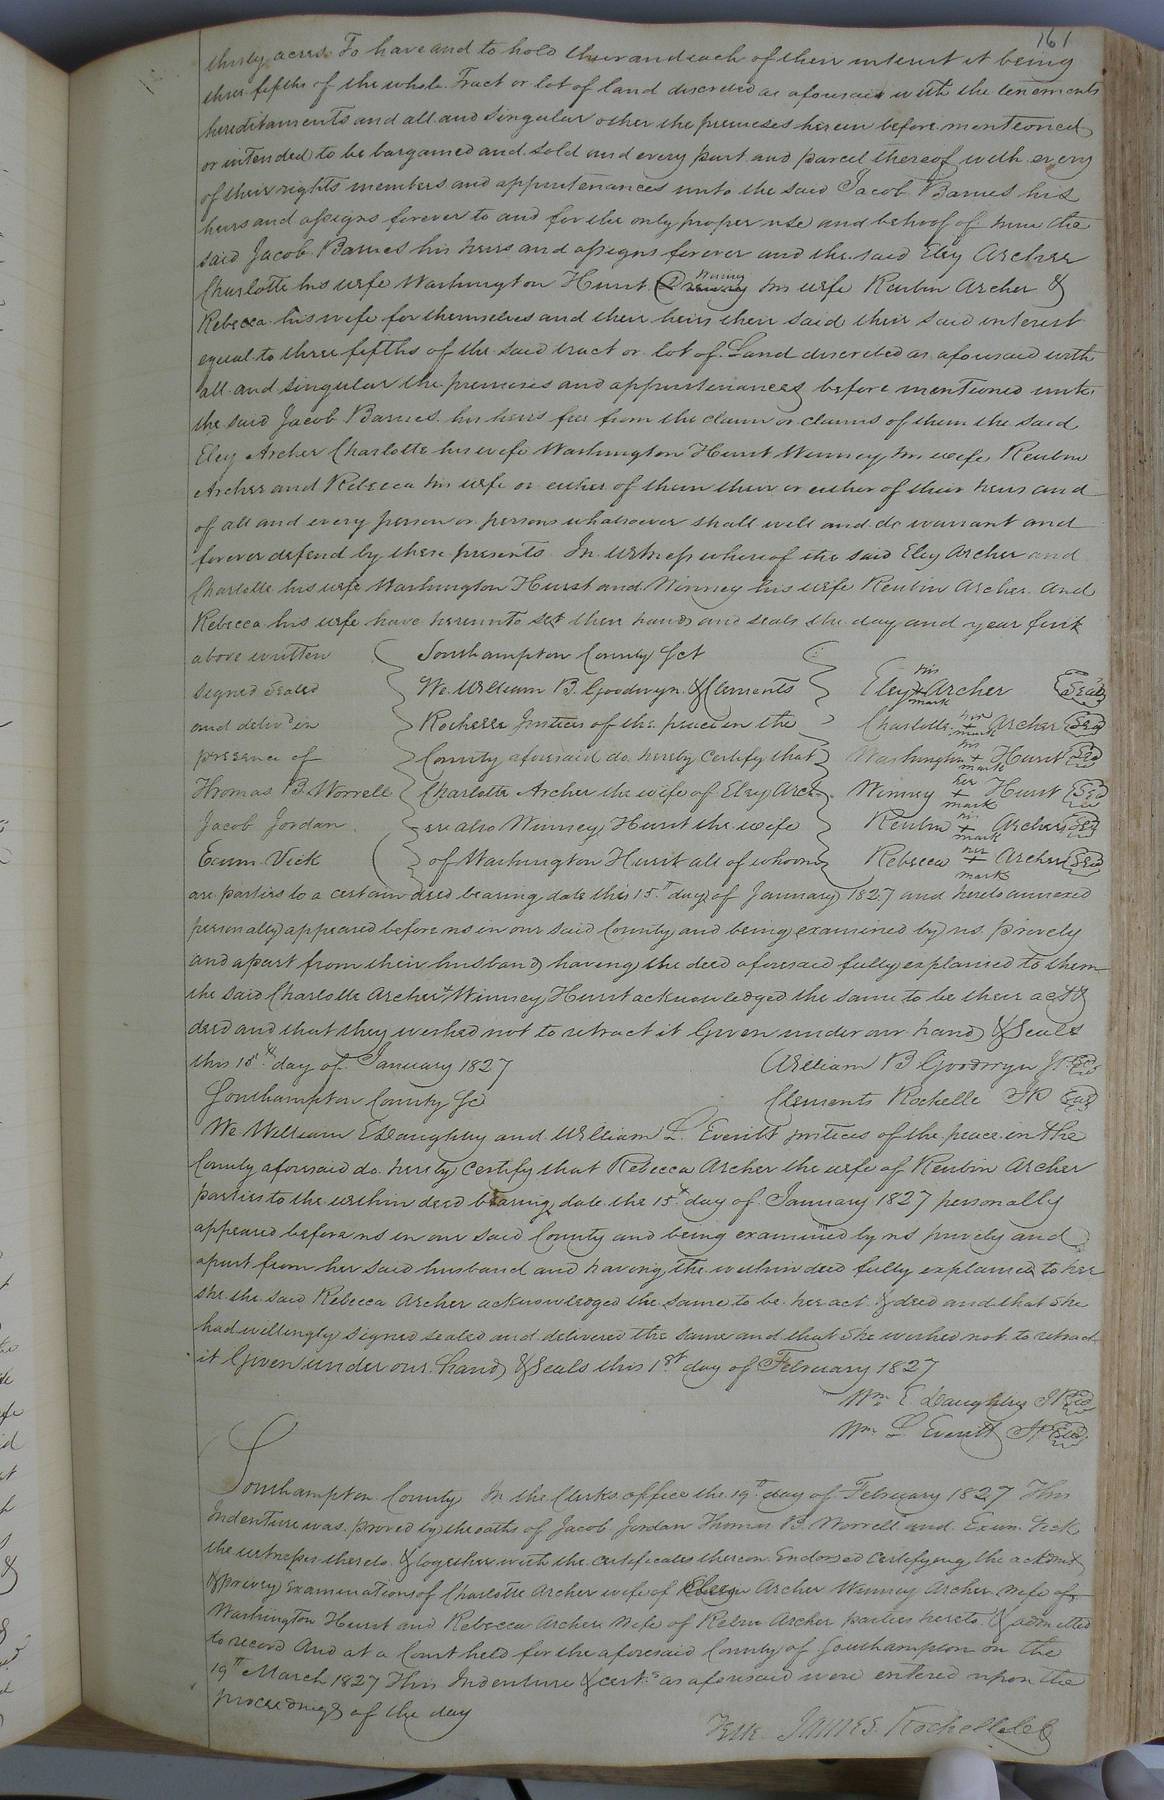 161
thirty acres To have and to hold their and each of their interest it being
three fifths of the whole Tract or lot of land discribed as aforesaid with the tenements
hereditaments and all and singular other the premeses herein before mentioned
or intended to be bargained and sold and every part and parcel thereof with every
of their rights members and appurtenances unto the said Jacob Barnes his
heirs and assigns forever to and for the only proper use and behoof of him the
said Jacob Barnes his heirs and assigns forever and the said Eley Archer
Charlotte his wife Washington Hurst Winney his wife Reubin Archer &
Rebecca his wife for themselves and their heirs their said their said interest
equal to three fifths of the said tract or lot of Land discribed as aforesaid with
all and singular the premises and appurtenances before mentioned unto
the said Jacob Barnes his heirs free from the claim or claims of them the said
Eley Archer Charlotte his wife Washington Hurst Winney his wife Reubin
Archer and Rebecca his wife or either of them their or either of their heirs and
of all and every person or persons whatsoever shall will and do warrant and
forever defend by these presents In witness whereof the said Eley Archer and
Charlotte his wife Washington Hurst and Winney his wife Reubin Archer and
Rebecca his wife have hereunto set their hands and seals the day and year first
above written
signed sealed
and delivd in
presence of
Thomas B. Worrell
Jacob Jordan
Exum Vick
Southampton County Sct
We William B. Goodwyn & Clements
Rochelle Justices of the peace in the
County aforesaid do hereby certify that
Charlotte Archer the wife of Eley Arch
er also Winney Hurst the wife
of Washington Hurst all of whom
Eley his + mark Archer Seal
Charlotte her + mark Archer Seal
Washington his + mark Hurst Seal
Winney her + mark Hurst Seal
Reubin his + mark Archer Seal
Rebecca her + mark Archer Seal
are parties to a certain deed bearing date this 15th day of January 1827 and hereto annexed
personally appeared before us in our said County and being examined by us privily
and apart from their husband having the deed aforesaid fully explained to them
the said Charlotte Archer & Winney Hurst acknowledged the same to be their act &
deed and that they wished not to retract it Given under our hand & Seals
this 15th day of January 1827
William B Goodwyn JP Seal
Clements Rochelle JP Seal
Southampton County Sc
We William E Daughtry and William L. Everitt justices of the peace in the
County aforesaid do hereby certify that Rebecca Archer the wife of Reubin Archer
parties to the within deed bearing date the 15th day of January 1827 personally
appeared before us in our said County and being examined by us privily and
apart from her said husband and having the within deed fully explained to her
she the said Rebecca Archer acknowledged the same to be her act & deed and that she
had willingly signed sealed and delivered the same and that she wished not to retract
it Given under our hand & Seals this 1st day of February 1827
Wm E. Daughtrey JP Seal
Wm L Everitt JP Seal
Southampton County In the Clerks office the 19th day of February 1827 This
Indenture was proved by the oaths of Jacob Jordan Thomas B. Worrell and Exum Vick
the witnesses thereto & together with the certificates thereon Endorsed certifying the acknmt
& privy Examinations of Charlotte Archer wife of Archer Winney Archer wife of
Washington Hurst and Rebecca Archer wife of Rebin Archer parties hereto & admitted
to record And at a Court held for the aforesaid County of Southampton on the
19th March 1827 This Indenture & certs as aforesaid were entered upon the
proceedings of the day
Teste James Rochelle Cl